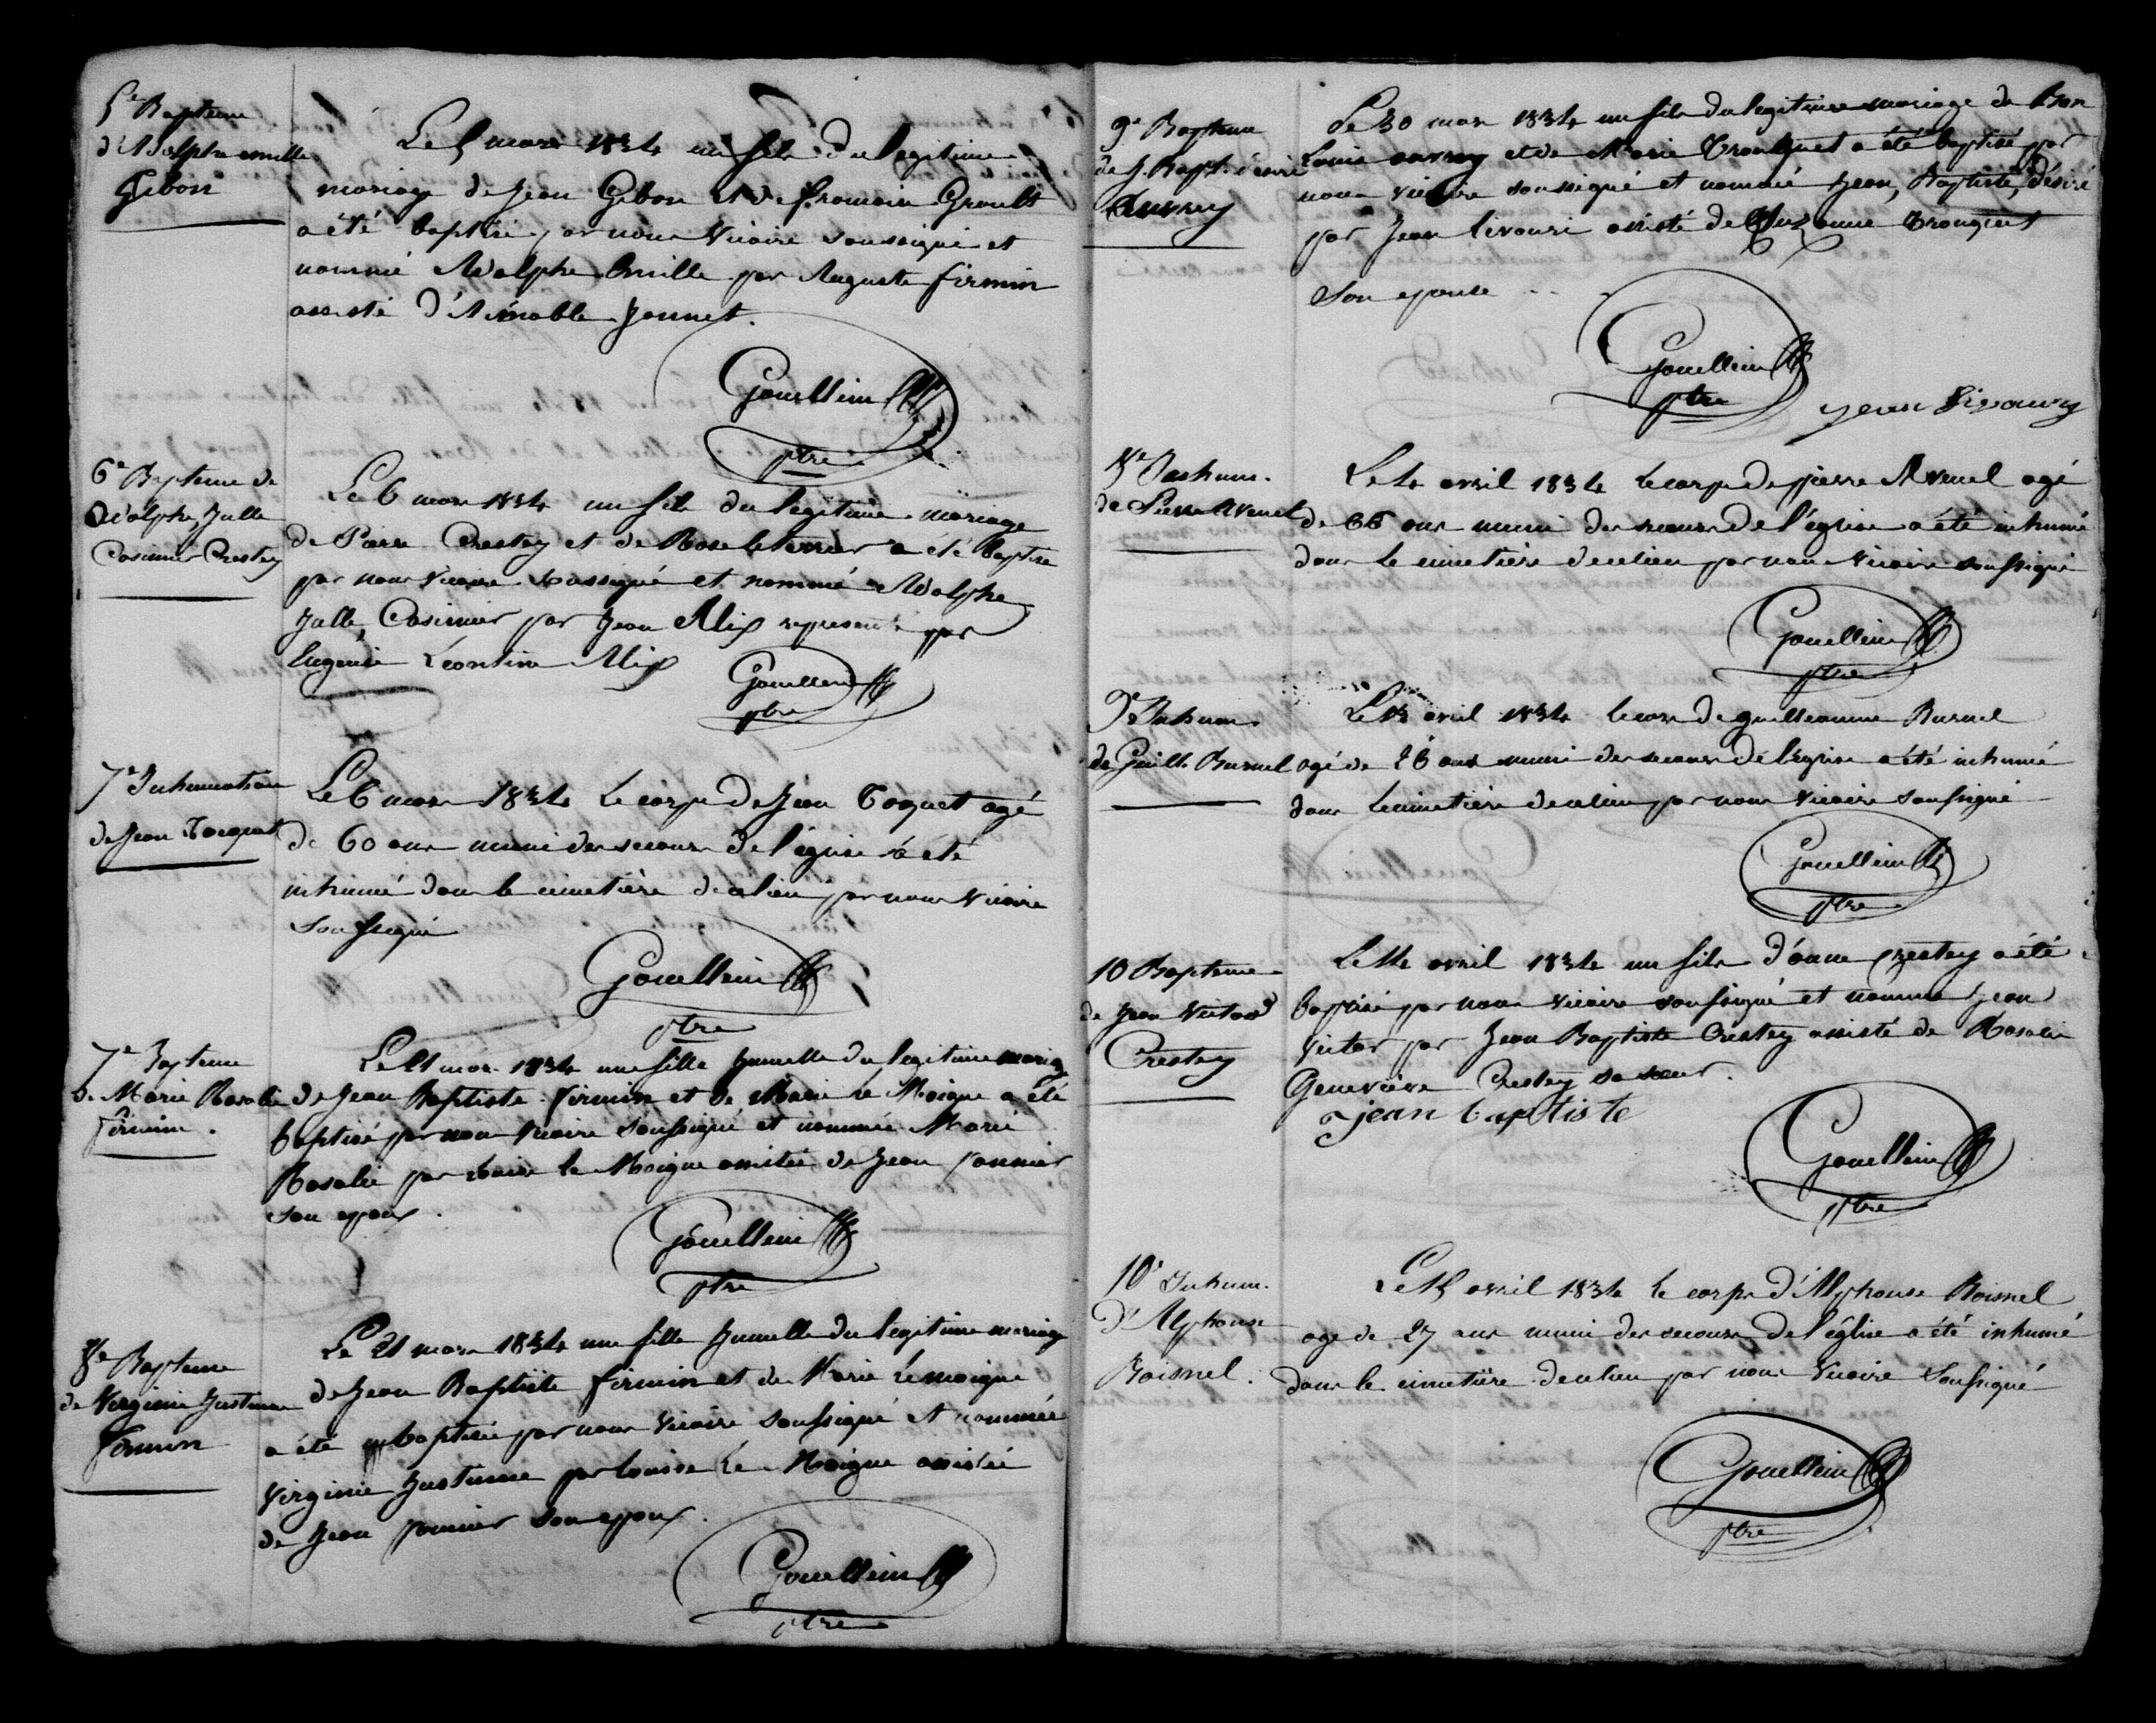 5e Bapteme
d'Adolphe emille
Gibon
Le 5 mars 1834 un fils du legitime
mariage de Jean Gibon et de Groult
a été baptisé par nous vicaire soussigné et
nommé Adolphe Emille par Auguste firmin
assisté d'Aimable Jennet.
Gouellain
ptre
6e Bapteme de
Adolphe, Julle
Casimir Crestey
Le 6 mars 1834 un fils du legitime mariage
de Pierre Crestey et de Rose leterrier a été baptisé
par nous vicaire soussigné et nommé Adolphe
Julle, Casimier par Jean Alix representé par
Eugenie Léontine Alix
Gouellain
ptre
7e Inhumation
de Jean Tocquet
Le 6 mars 1834 Le corps de Jean Toquet agé
de 60 ans muni des secours de l'église a été
inhumé dans le cimetière de ce lieu par nous vicaire
soussigné
Gouellain
ptre
7e Bapteme
de Marie Rosalie
firmin.
Le 21 mars 1834 une fille Jumelle du legitime mariage
de Jean Baptiste firmin et de Marie le Moigne a été
baptisé par nous vicaire soussigné et nommée Marie
Rosalie par Louise le Moigne assistée de Jean
son epoux.
Gouellain
ptre
8e Bapteme
de Virginie Justinne
firmin
Le 21 mars 1834 une fille Jumelle du legitime mariage
de Jean Baptiste firmin et de Marie Lemoigne
a été baptisée par nous vicaire soussigné et nommée
Virginie Justinne par louise Le Moigne assistée
de Jean son epoux.
Gouellain
ptre
9e Bapteme
de J. Bapt. désiré
Auvray
Le 30 mars 1834 un fils du legitime mariage de Bon
Louis auvray et de Marie Trouquet a été baptisé par
nous vicaire soussigné et nommé Jean, Baptiste, désiré
par Jean livouri assisté de Suzanne Trouquet
Son epouse
Gouellain
ptre
jean Livoury
8e Inhum.
de Pierre Avenel
Le 4 avril 1834 Le corps de pierre Avenel agé
de 66 ans muni des secours de l'église a été inhumé
dans le cimetière de ce lieu par nous vicaire soussigné
Gouellain
ptre
9e Inhum.
de Guill. Burnel
Le 13 avril 1834 le corps de guilleaume Burnel
agé de 26 ans muni des secours de l'église a été inhumé
dans le cimetière de ce lieu par nous vicaire soussigné
Gouellain
ptre
10 Bapteme
de Jean Victor
Crestey
Le 14 avril 1834 un fils d'anne Crestey a été
baptisé par nous vicaire soussigné et nommé Jean
victor par Jean Baptiste Crestey assisté de Rosalie
Geneviève Crestey sa sœur.
jean baptiste
Gouellain
ptre
10e Inhum.
d'Alphonse
Boisnel.
Le 15 avril 1834 le corps d'Alphonse Boisnel
agé de 27 ans muni des secours de l'église a été inhumé
dans le cimetière de ce lieu par nous vicaire soussigné
Gouellain
ptre